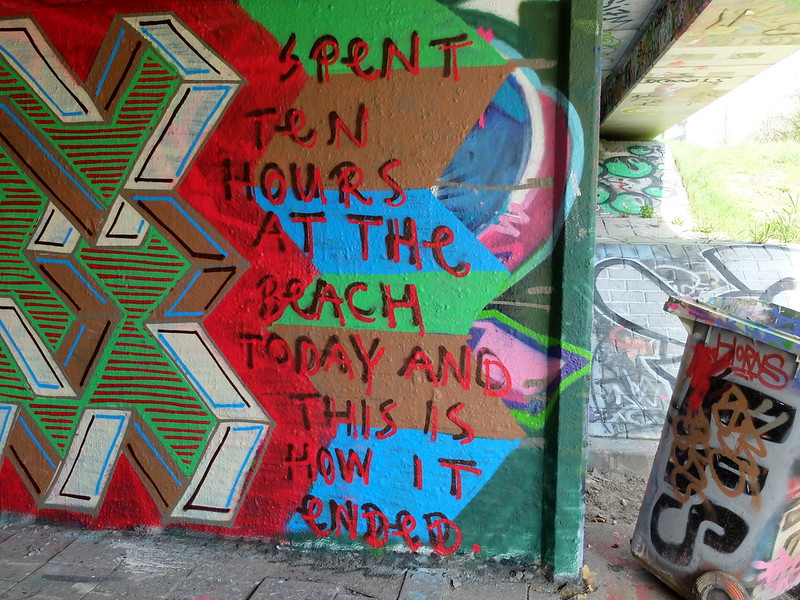 SPENT
TeN
HOURS
AT THe
BeACH
TODAY AND
THIS IS
HOW IT
eNDeD.
HORNS